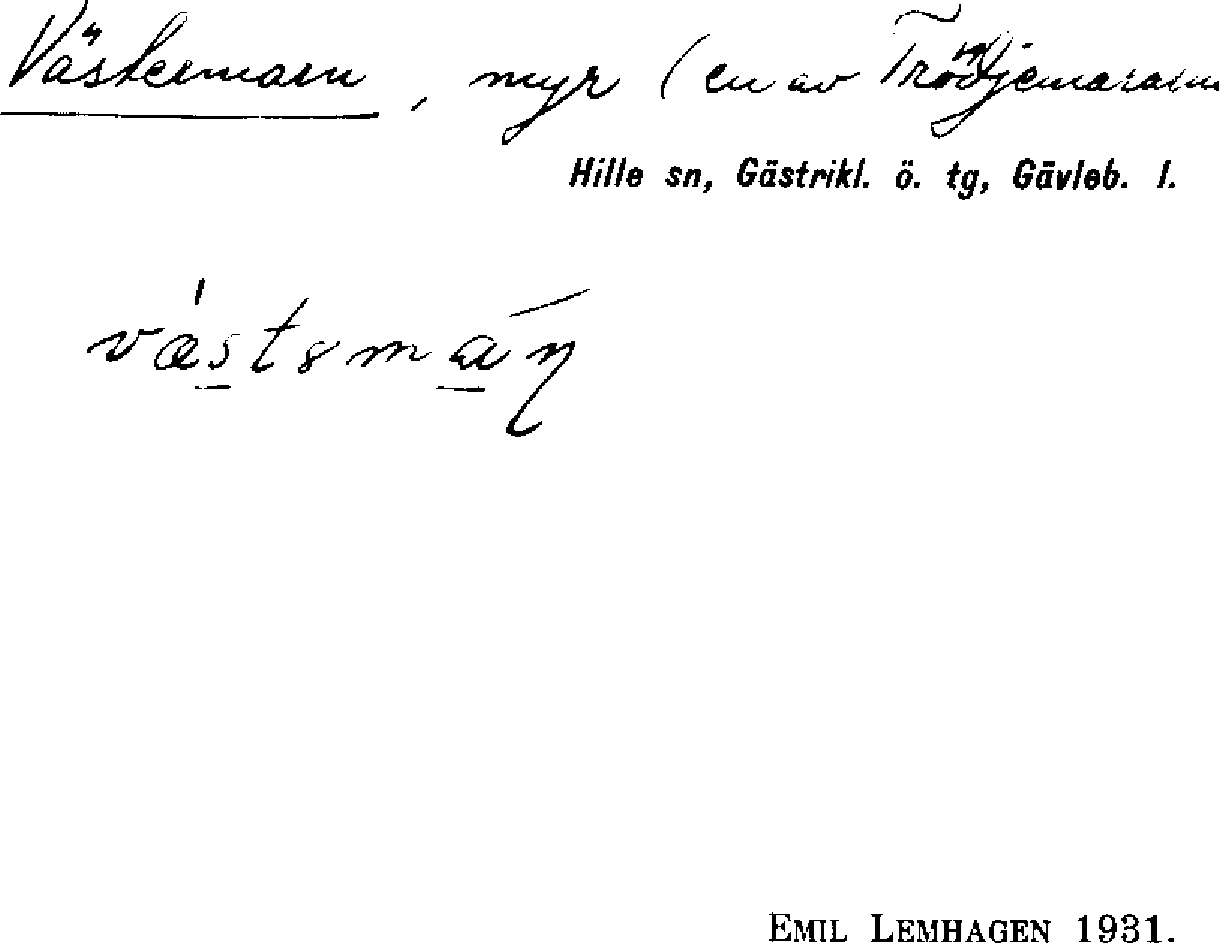 Västermarn, myr (en av Trödjemararna
Hille sn, Gästrikl. ö. tg, Gävleb. l.
EMIL LEMHAGEN 1931.